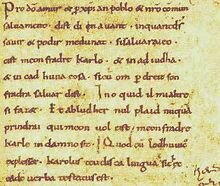 Pro dō amur & p xp̄ian poblo & nrō comun
saluament. dist di en auant. inquantdſ
sauir & podir medunat. sisaluaraieo.
cist meon fradre karlo. & in adiudha.
& in cad huna cosa. sicū om p dreit son
fradra saluar dist. Ino quid il mialtre
si faz&. Et abludher nul plaid nūquā
prindrai qui meon uol cist meonfradre
karle in damno sit. Quod cū lodhuuic
explesset. karolus teudisca lingua sic
eadē uerba testatus est.